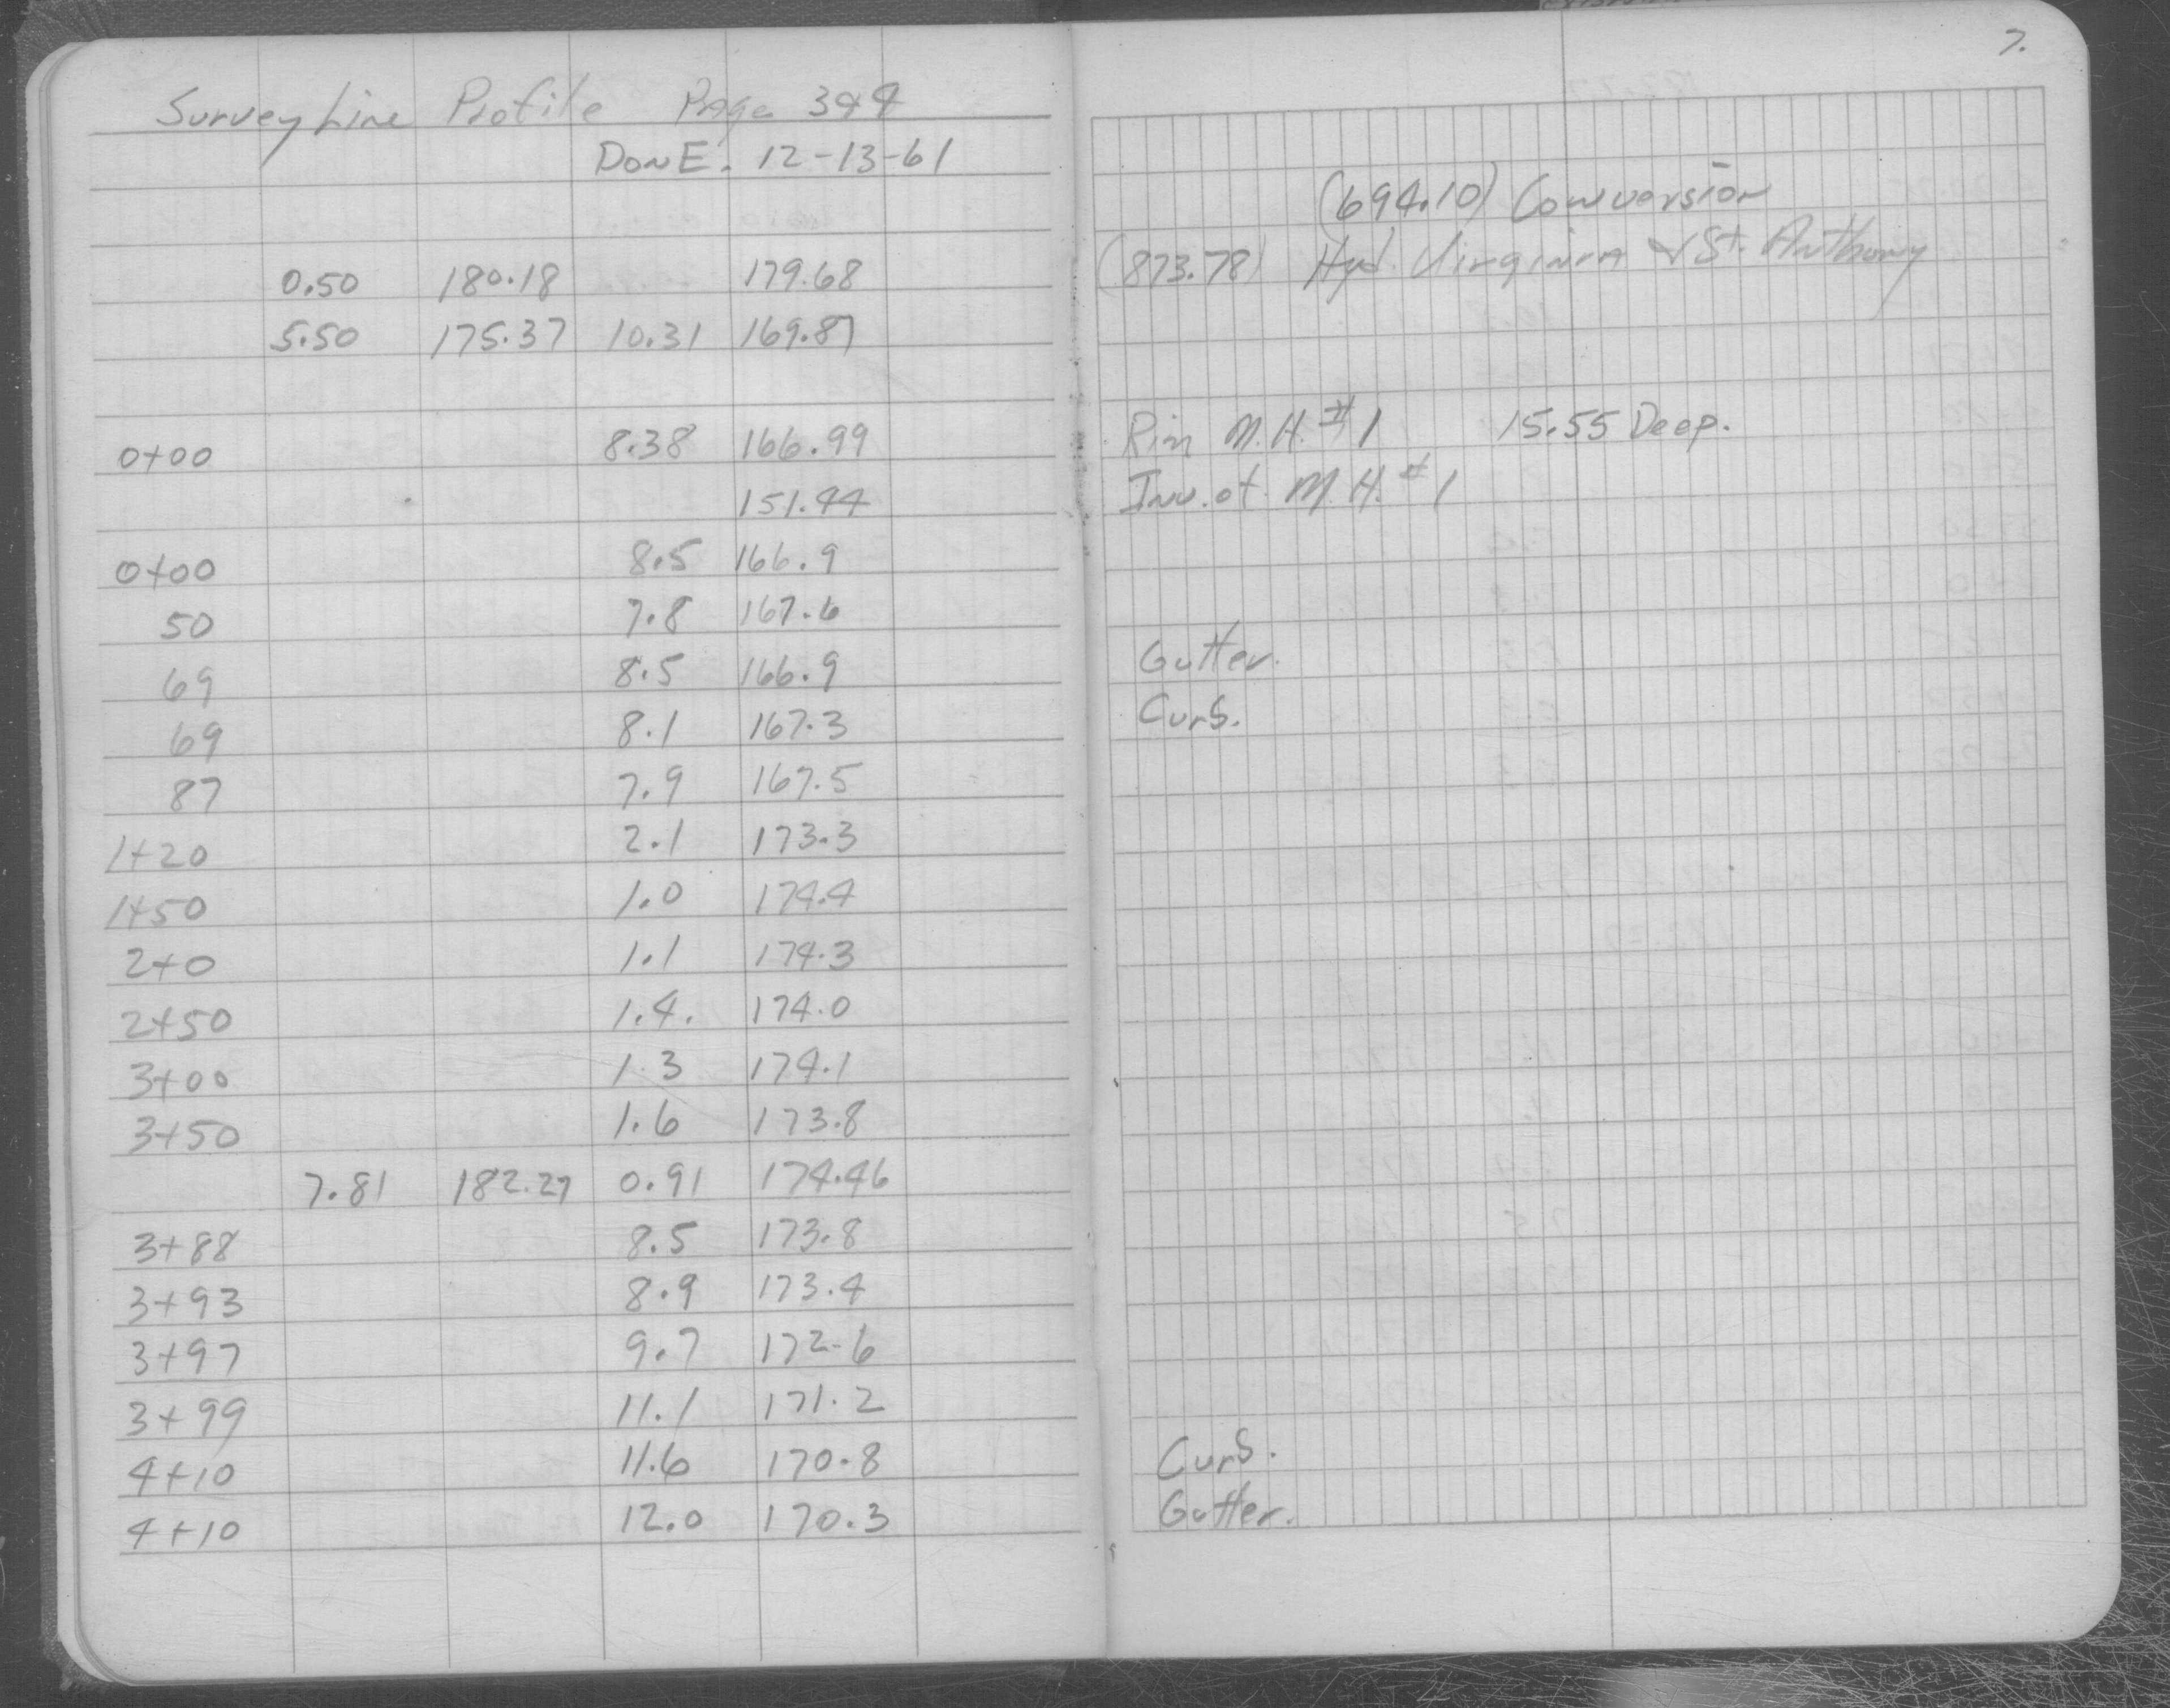 7.
Survey Line Profile Page 3&4
DONE. 12-13-61
(694.10) Conversion
0.50 180.18 179.68 (873.78) Hyd. Virginia & St. Anthony
5.50 175.37 10.31 169.87
0+00 8.38 166.99 Rim M.H. #1 15.55 Deep.
151.44 Inv. of M.H. #1
0+00 8.5 166.9
50 7.8 167.6
69 8.5 166.9 Gutter.
69 8.1 167.3 Curb.
87 7.9 167.5
1+20 2.1 173.3
1+50 1.0 174.4
2+0 1.1 174.3
2+50 1.4. 174.0
3+00 1.3 174.1
3+50 1.6 173.8
7.81 182.27 0.91 174.46
3+88 8.5 173.8
3+93 8.9 173.4
3+97 9.7 172.6
3+99 11.1 171.2
4+10 11.6 170.8 Curb.
4+10 12.0 170.3 Gutter.